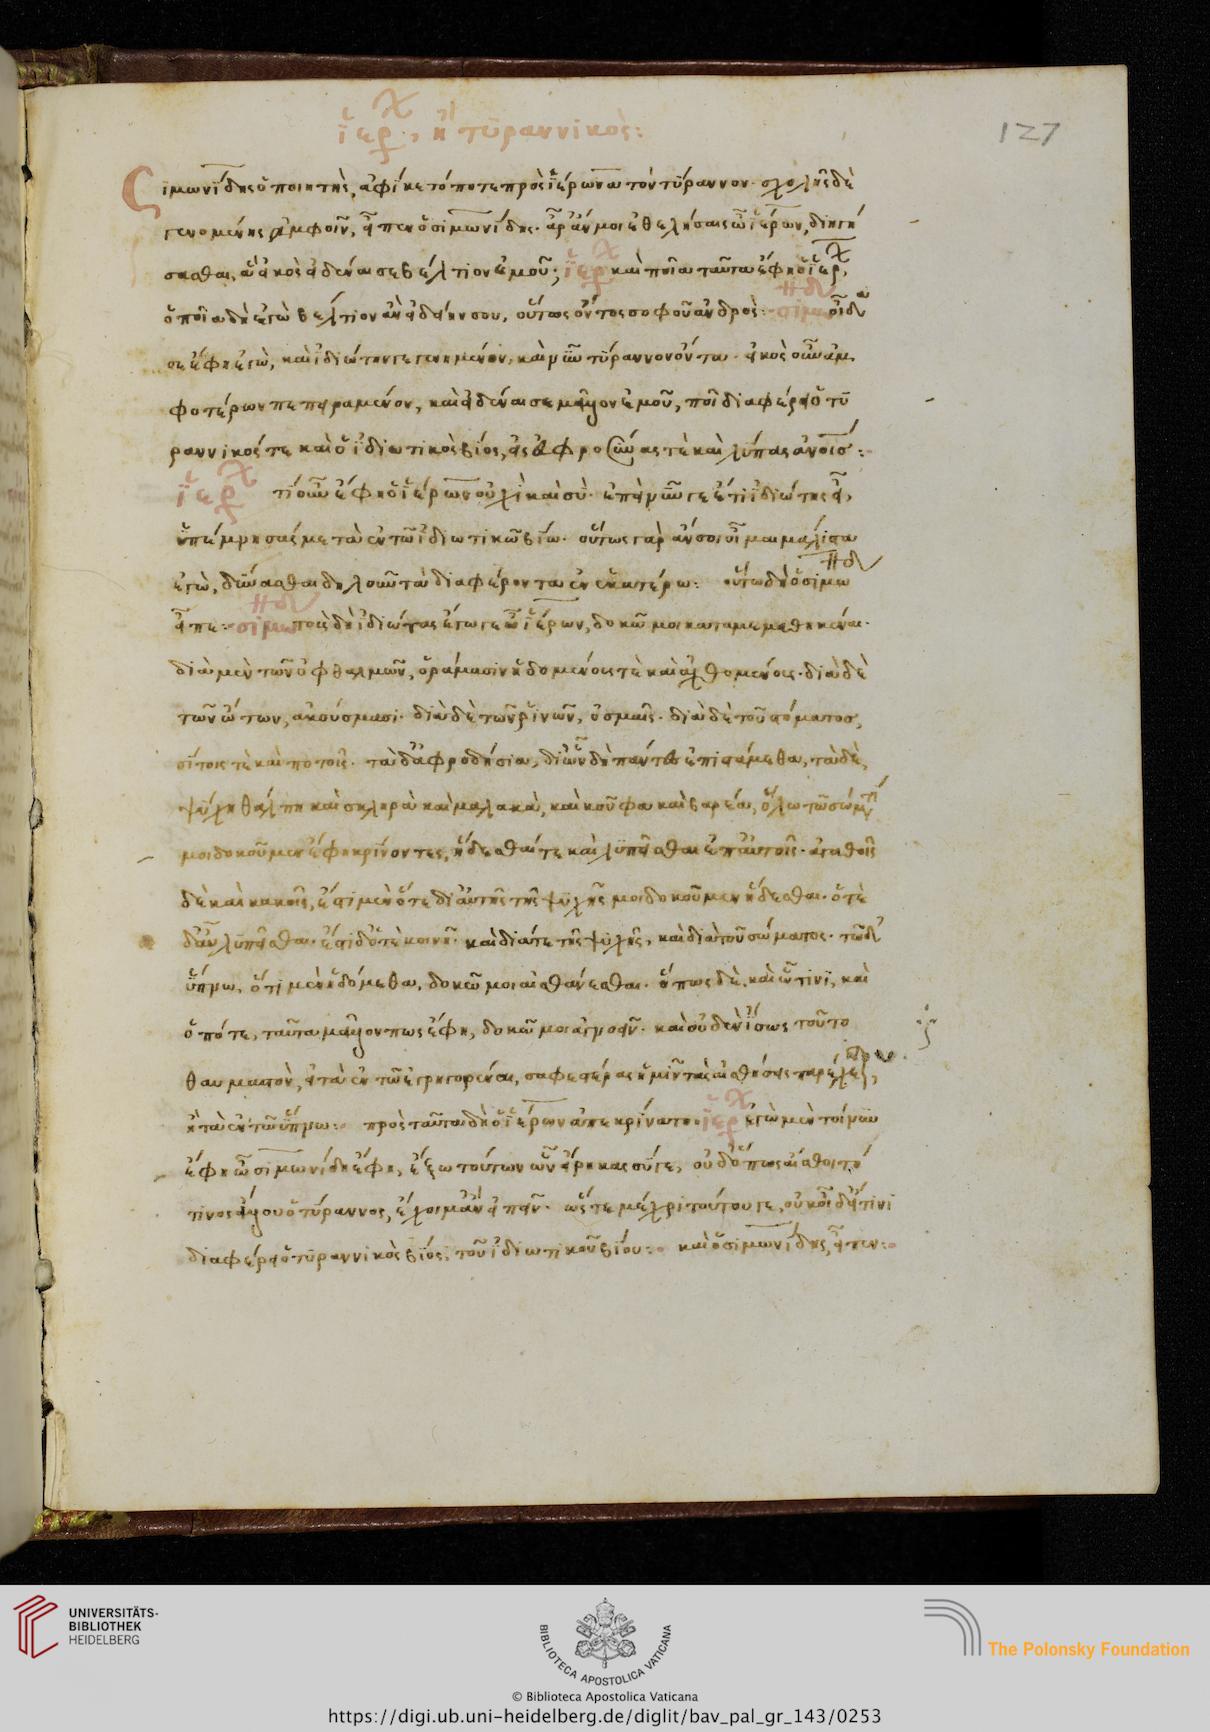 ἱέρων, ἢ τυραννικός:
127
Σιμωνίδης ὁ ποιητὴς, ἀφίκετό ποτε πρὸς ἱέρωνα τὸν τύραννον· σχολῆς δὲ
γενομένης ἀμφοῖν, εἶπεν ὁ σιμωνίδης· ἆρ' ἄν μοι ἐθελήσαις ὦ ἱέρων, διηγή
σασθαι, ἃ εἰκὸς εἰδέναι σε βέλτιον ἐμοῦ; ἱέρων καὶ ποῖα ταῦτα ἔφη ὁ ἱέρων,
ὁποῖα δὴ ἐγὼ βέλτιον ἂν εἰδείην σου, οὕτως ὄντος σοφοῦ ἀνδρός: σιμω οἶδά
σε ἔφη ἐγὼ, καὶ ἰδιώτην γεγενημένον, καὶ νῦν τύραννον ὄντα· εἰκὸς οὖν ἀμ
φοτέρων πεπειραμένον, καὶ εἰδέναι σε μᾶλλον ἐμοῦ, πῆ διαφέρει ὁ τυ
ραννικός τε καὶ ὁ ἰδιωτικὸς βίος, εἰς εὐφροσύνας τὲ καὶ λύπας ἀνοις:
ἱέρων τί οὖν ἔφη ὁ ἱέρων οὐχὶ καὶ σὺ· ἐπεὶ νῦν γε ἔτι ἰδιώτης εἶ,
ὑπέμνησάς με τὰ ἐν τῶ ἰδιωτικῶ βίω· οὕτως γὰρ ἄν σοι οἶμαι μάλιστα
ἐγὼ, δύνασθαι δηλοῦν τὰ διαφέροντα ἐν ἑκατέρω: οὕτω δὴ ὁ σιμω
εἶπε: σιμω τοὺς δὴ ἰδιώτας ἔγωγε ὦ ἱέρων, δοκῶ μοι καταμεμαθηκέναι·
διὰ μὲν τῶν ὀφθαλμῶν, ὁράμασιν ἡδομένους τὲ καὶ ἀχθομένους· διὰ δὲ
τῶν ὤτων, ἀκούσμασι· διὰ δὲ τῶν ῥινῶν, ὀσμαῖς· διὰ δὲ τοῦ στόματος,
σίτοις τὲ καὶ ποτοῖς· τὰ δ' ἀφροδήσια, δι' ὧν δὴ πάντες ἐπιστάμεθα, τὰ δὲ,
ψύχη θάλπη καὶ σκληρὰ καὶ μαλακὰ, καὶ κοῦφα καὶ βαρέα, ὅλω τῶ σώματί
μοι δοκοῦμεν ἔφη κρίνοντες, ἥδεσθαί τε καὶ λυπεῖσθαι ἐπ' αὐτοῖς· ἀγαθοῖς
δὲ καὶ κακοῖς, ἔστι μὲν ὅτε δι' αὐτῆς τῆς ψυχῆς μοι δοκοῦμεν ἥδεσθαι· ὁτὲ
δ' αὖ λυπεῖσθαι· ἔστι δ' ὁτὲ κοινῆ· καὶ διά τε τῆς ψυχῆς, καὶ διὰ τοῦ σώματος· τῶ δ'
ὕπνω, ὅτι μὲν ἡδόμεθα, δοκῶ μοι αἰσθάνεσθαι· ὅπως δὲ, καὶ ὧτινι, καὶ
ὁπότε, ταῦτα μᾶλλον πως ἔφη, δοκῶ μοι ἀγνοεῖν· καὶ οὐδὲν ἴσως τοῦτο
θαυμαστὸν, εἰ τὰ ἐν τῶ ἐγρηγορέναι, σαφεστέρας ἡμῖν τὰς αἰσθήσεις παρέχει,
ἢ τὰ ἐν τῶ ὕπνω: πρὸς ταῦτα δὴ ὁ ἱέρων ἀπεκρίνατο: ἱέρων ἐγὼ μὲν τοίνυν
ἔφη ὦ σιμωνίδη ἔφη, ἔξω τούτων ὧν εἴρηκας σύγε, οὐδ' ὅπως αἴσθοιτό
τινος ἄλλου ὁ τύραννος, ἔχοιμ' ἂν εἰπεῖν· ὥστε μέχρι τούτου γε, οὐκ οἶδ' εἴ τινι
διαφέρει ὁ τυραννικὸς βίος, τοῦ ἰδιωτικοῦ βίου: καὶ ὁ σιμωνίδης εἶπεν:
UNIVERSITÄTS-
BIBLIOTHEK
HEIDELBERG
BIBLIOTECA APOSTOLICA VATICANA
The Polonsky Foundation
© Biblioteca Apostolica Vaticana
https://digi.ub.uni-heidelberg.de/diglit/bav_pal_gr_143/0253